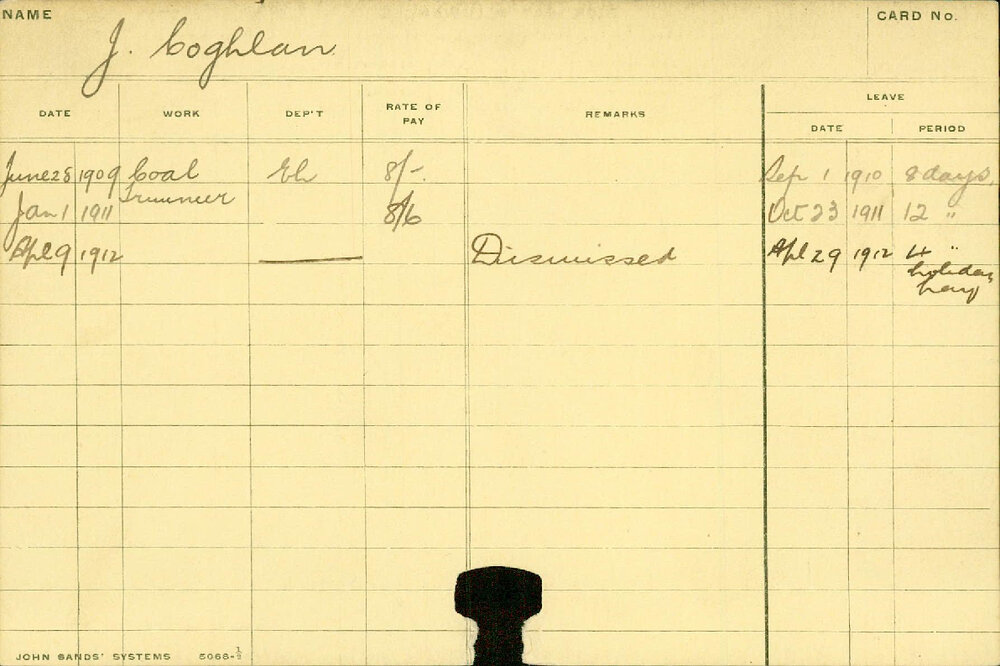 NAME J. Coghlan CARD No.
LEAVE
DATE WORK DEP'T RATE OF PAY REMARKS DATE PERIOD
June 28 1909 Coal El 8/-. Sep 1 1910 8 days,
Jan 1 1911 Trimmer 8/6 Oct 23 1911 12 "
Apl 9 1912 Dismissed Apl 29 1912 4 "
holiday
pay
JOHN SANDS' SYSTEMS 5068-½